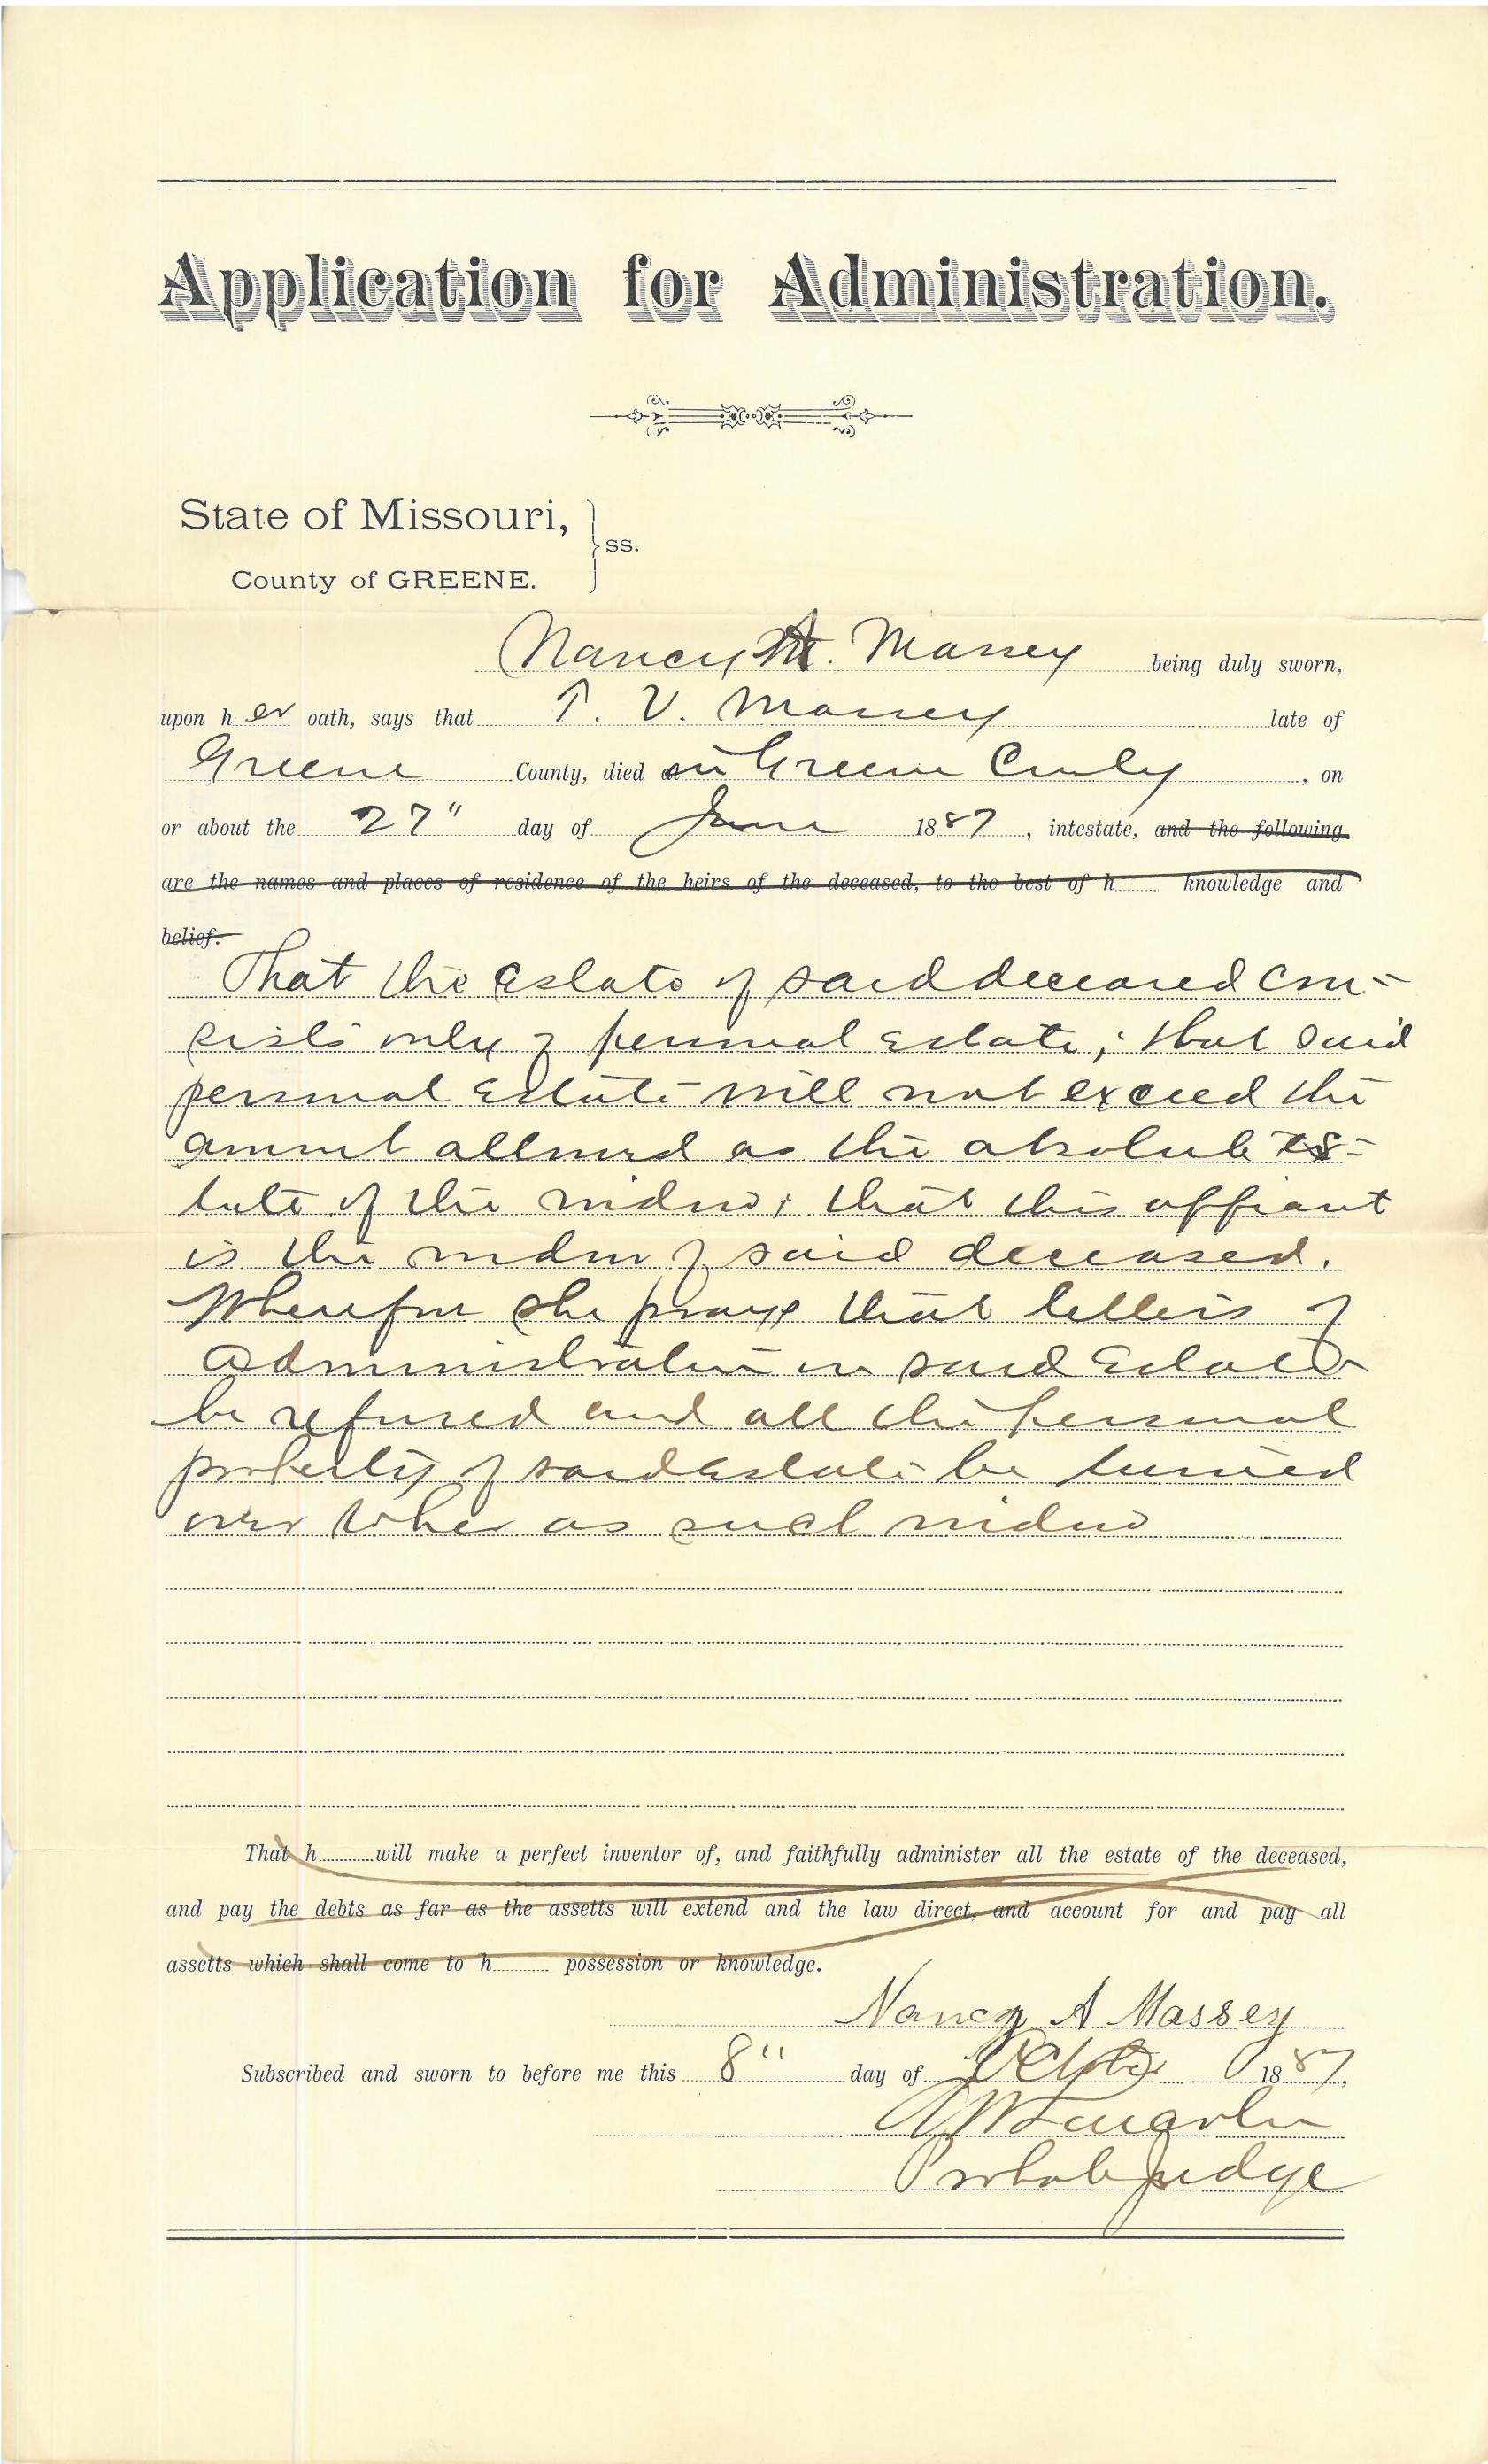 Application for Administration.
State of Missouri,
ss.
County of GREENE.
Nancy A. Massey being duly sworn,
upon her oath, says that T. V. Massey late of
Greene County, died in Greene County, on
or about the 27" day of June 1887, intestate, and the following
are the names and places of residence of the heirs of the deceased, to the best of h knowledge and
belief.
That the Estate of said deceased con-
sists only of personal Estate; that said
personal Estate will not exceed the
amount allowed as the absolute es-
tate of the widow; that this affiant
is the widow of said deceased.
Wherefore she prays that letters of
Administration on said Estate
be refused and all the personal
property of said Estate be turned
over to her as such widow
That h will make a perfect inventor of, and faithfully administer all the estate of the deceased,
and pay the debts as far as the assetts will extend and the law direct, and account for and pay all
assetts which shall come to h possession or knowledge.
Nancy A Massey
Subscribed and sworn to before me this 8" day of 1887,
Probate Judge